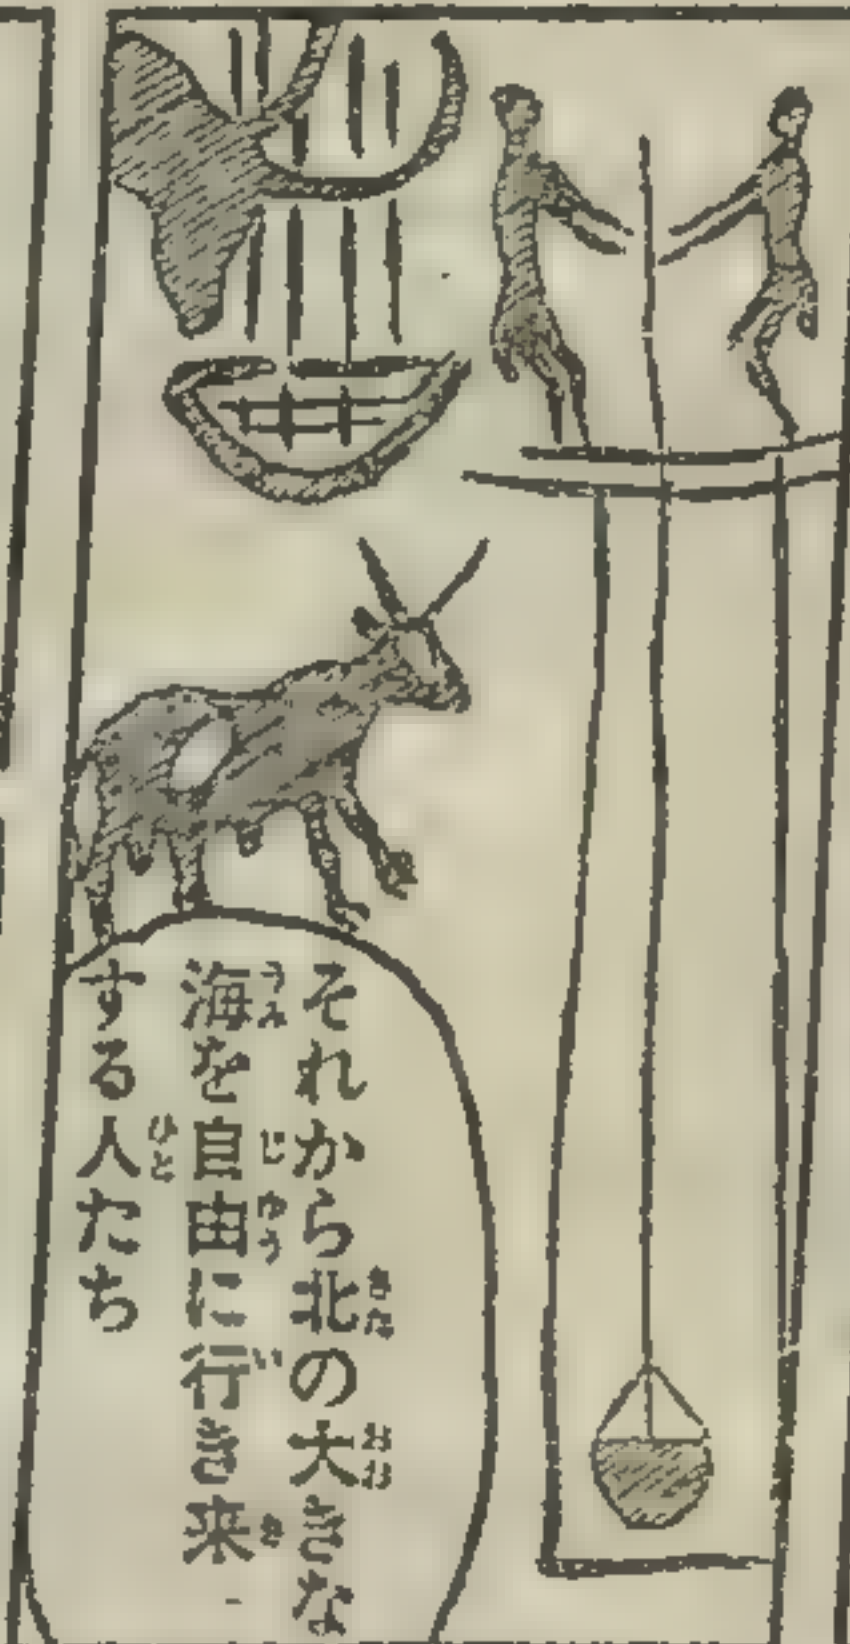 それから北の大きな
海を自由に行き来
する人たち